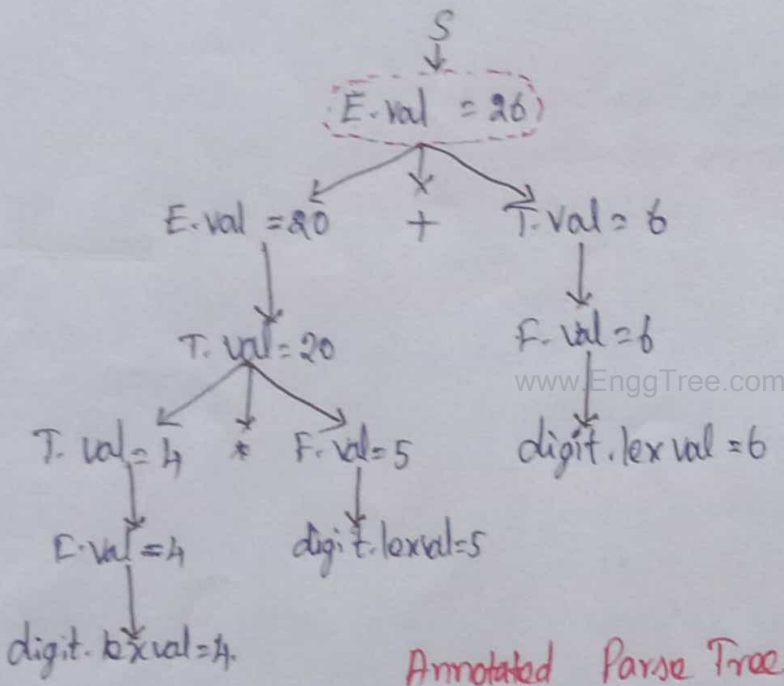 S
E.val = 26
E.val = 20 + T.val = 6
T.val = 20 F.val = 6
www.EnggTree.com
T.val = 4 * F.val = 5 digit.lexval = 6
E.val = 4 digit.lexval = 5
digit.lexval = 4.
Annotated Parse Tree